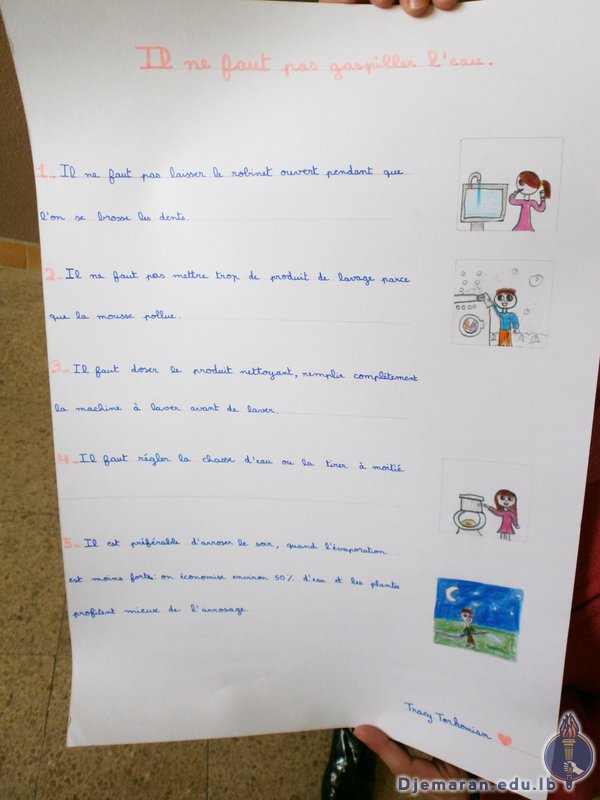 Il ne faut pas gaspiller l'eau.
1_ Il ne faut pas laisser le robinet ouvert pendant que
l'on se brosse les dents.
2_ Il ne faut pas mettre trop de produit de lavage parce
que la mousse pollue.
3_ Il faut doser le produit nettoyant, remplir complètement
la machine à laver avant de laver.
4_ Il faut régler la chasse d'eau ou la tirer à moitié.
5_ Il est préférable d'arroser le soir, quand l'évaporation
est moins forte: on économise environ 50% d'eau et les plantes
profitent mieux de l'arrosage.
Tracy Torkomian
Djemaran.edu.lb